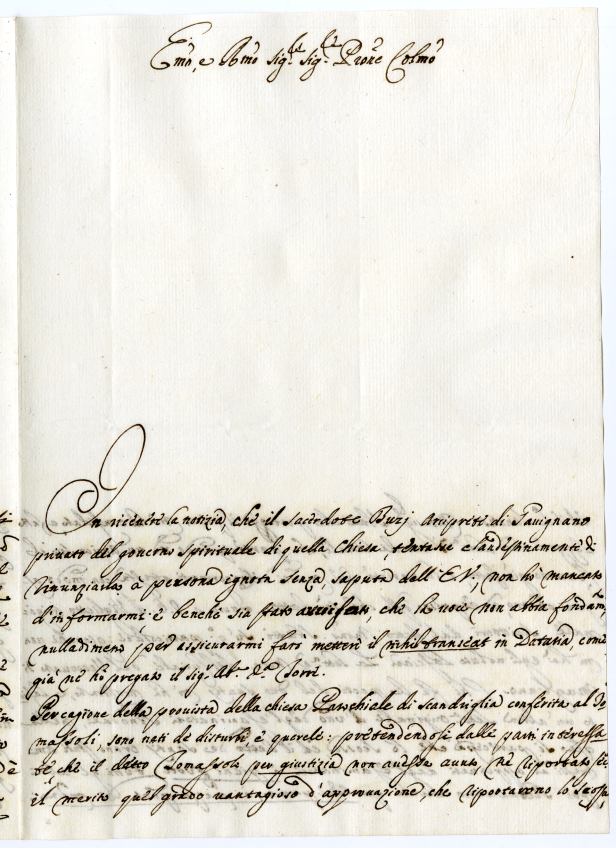 Emo, e Rmo Sigre Sigre Prone Colmo
In ricevere la notizia, che il Sacerdote Buzj Arciprete di Gavignano
privato del governo Spirituale di quella Chiesa, tentasse clandestinamente di
rinunziarla à persona ignota senza saputa dell'E.V., non hò mancato
d'informarmi; e benche sia stato avvisato, che la voce non abbia fondam
nulladimeno per assicurarmi farò mettere il nihil transeat in Dataria, come
già nè hò pregato il Sigr Ab. Torri.
Per cagione della provista della Chiesa Parochiale di Scandriglia conferita al To
massoli, sono nati de disturbi, e querele: pretendendosi dalle parti interessa
te, che il detto Tomassoli per giustizia non avesse avuto, nè riportato
il merito quel grado vantagioso d'approvazione, che riportarono lo